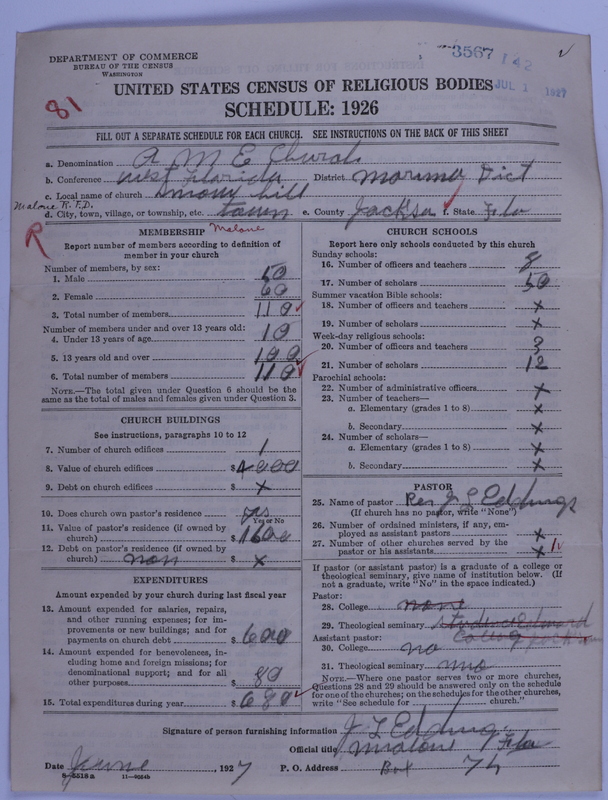 3567 142
JUL 1 1927
DEPARTMENT OF COMMERCE
BUREAU OF THE CENSUS
WASHINGTON
UNITED STATES CENSUS OF RELIGIOUS BODIES
81
SCHEDULE: 1926
FILL OUT A SEPARATE SCHEDULE FOR EACH CHURCH. SEE INSTRUCTIONS ON THE BACK OF THIS SHEET
a. Denomination A M E Church
b. Conference West Florida District Marianna Dict
c. Local name of church Mony hill
Malone R.F.D.
d. City, town, village, or township, etc. town e. County Jackson f. State Fla
R Malone
MEMBERSHIP
Report number of members according to definition of
member in your church
Number of members, by sex:
1. Male 50
2. Female 60
3. Total number of members 110
Number of members under and over 13 years old:
4. Under 13 years of age 10
5. 13 years old and over 100
6. Total number of members 110
NOTE.—The total given under Question 6 should be the
same as the total of males and females given under Question 3.
CHURCH BUILDINGS
See instructions, paragraphs 10 to 12
7. Number of church edifices 1
8. Value of church edifices $ 4000
9. Debt on church edifices $ x
10. Does church own pastor's residence yes
Yes or No
11. Value of pastor's residence (if owned by
church) $ 1600
12. Debt on pastor's residence (if owned by
church) non $ x
EXPENDITURES
Amount expended by your church during last fiscal year
13. Amount expended for salaries, repairs,
and other running expenses; for im-
provements or new buildings; and for
payments on church debt $ 600
14. Amount expended for benevolences, in-
cluding home and foreign missions; for
denominational support; and for all
other purposes $ 80
15. Total expenditures during year $ 680
CHURCH SCHOOLS
Report here only schools conducted by this church
Sunday schools:
16. Number of officers and teachers 8
17. Number of scholars 50
Summer vacation Bible schools:
18. Number of officers and teachers x
19. Number of scholars x
Week-day religious schools:
20. Number of officers and teachers 3
21. Number of scholars 12
Parochial schools:
22. Number of administrative officers x
23. Number of teachers—
a. Elementary (grades 1 to 8) x
b. Secondary x
24. Number of scholars—
a. Elementary (grades 1 to 8) x
b. Secondary x
PASTOR
25. Name of pastor Rev J L Eddings
(If church has no pastor, write "None")
26. Number of ordained ministers, if any, em-
ployed as assistant pastors x
27. Number of other churches served by the
pastor or his assistants x
If pastor (or assistant pastor) is a graduate of a college or
theological seminary, give name of institution below. (If
not a graduate, write "No" in the space indicated.)
Pastor:
28. College none
29. Theological seminary
Assistant pastor:
30. College no
31. Theological seminary
NOTE.—Where one pastor serves two or more churches,
Questions 28 and 29 should be answered only on the schedule
for one of the churches; on the schedules for the other churches,
write "See schedule for church."
Signature of person furnishing information J L Eddings
Official title Malone Fla
Date June, 1927 P. O. Address Box 74
8-5518a 11-9554b